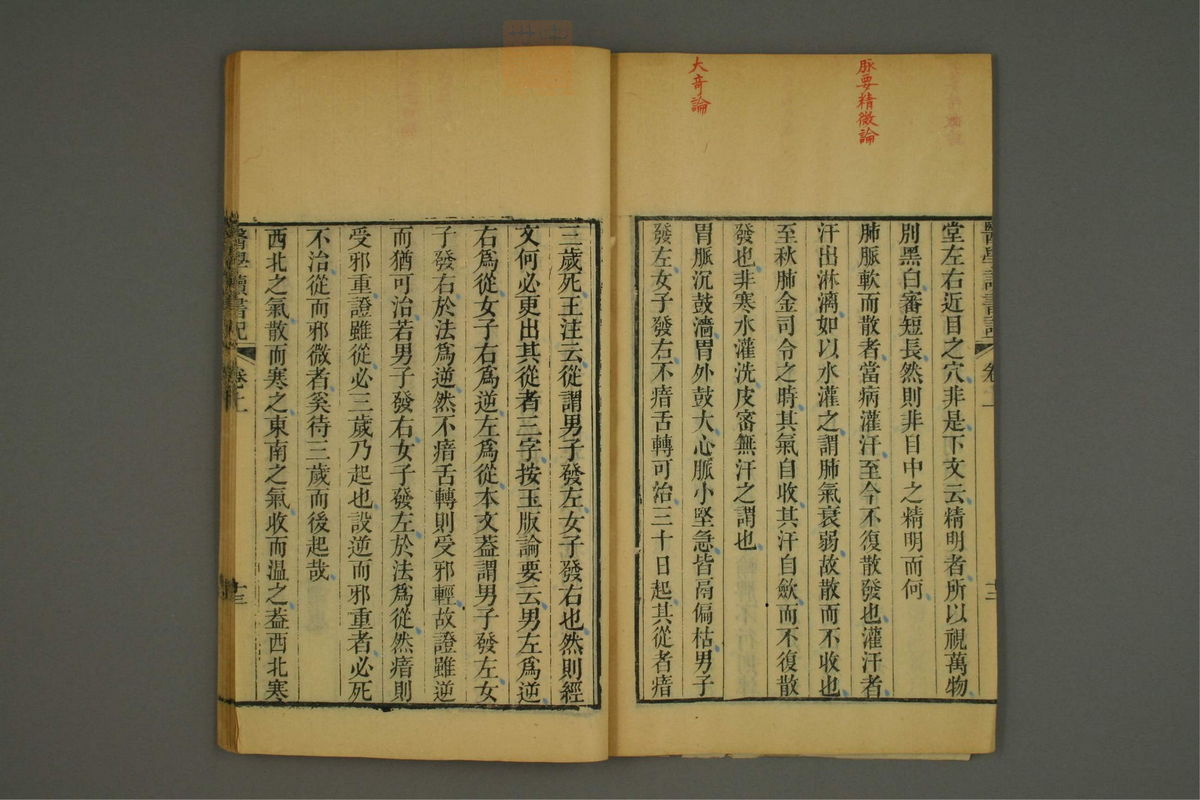 脉要精微論
大奇論
醫學讀書記
卷上
十二
堂左右近目之穴非是下文云精明者所以視萬物
別黑白審短長然則非目中之精明而何
肺脈軟而散者當病灌汗至今不復散發也灌汗者
汗出淋漓如以水灌之謂肺氣衰弱故散而不收也
至秋肺金司令之時其氣自收其汗自歛而不復散
發也非寒水灌洗皮審無汗之謂也
胃脈沉鼓濇胃外鼓大心脈小堅急皆鬲偏枯男子
發左女子發右不瘖舌轉可治三十日起其從者瘖
三歲死王注云從謂男子發左女子發右也然則經
文何必更出其從者三字按玉版論要云男左爲逆
右爲從女子右爲逆左爲從本文葢謂男子發左女
子發右於法爲逆然不瘖舌轉則受邪輕故證雖逆
而猶可治若男子發右女子發左於法爲從然瘖則
受邪重證雖從必三歲乃起也設逆而邪重者必死
不治從而邪微者奚待三歲而後起哉
西北之氣散而寒之東南之氣收而溫之葢西北寒
醫學讀書記
卷上
十三